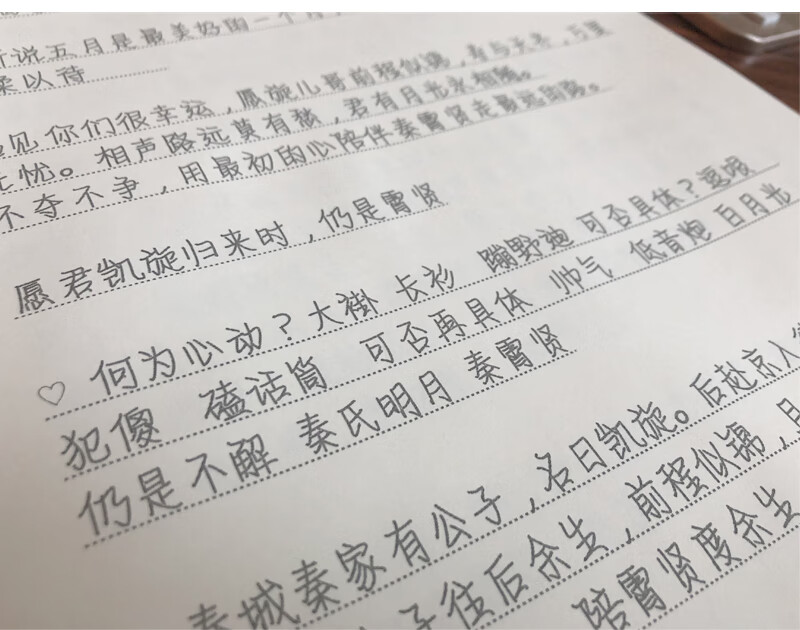 听说五月是最美好的一个月
柔以待
遇见你们很幸运，愿旋儿哥前程似锦，
无忧。相声路远莫有愁，君有月光永相随。
不夺不争，用最初的心陪伴秦霄贤走最远的路。
愿君凯旋归来时，仍是霄贤
♡ 何为心动？大褂 长衫 蹦野迪 可否具体？逗哏
犯傻 磕话筒 可否再具体 帅气 低音炮 白月光
仍是不解 秦氏明月 秦霄贤
春城秦家有公子，名曰凯旋。后赴京入
子往后余生，前程似锦，
陪霄贤度余生